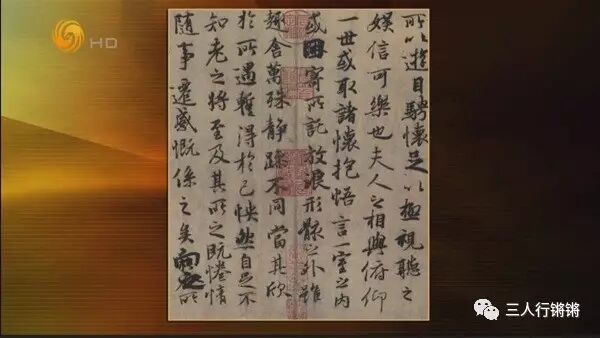 HD
所以遊目騁懷足以極視聽之
娛信可樂也夫人之相與俯仰
一世或取諸懷抱悟言一室之內
或因寄所託放浪形骸之外雖
趣舍萬殊靜躁不同當其欣
於所遇暫得於己怏然自足不
知老之將至及其所之既惓情
隨事遷感慨係之矣向之所
三人行锵锵